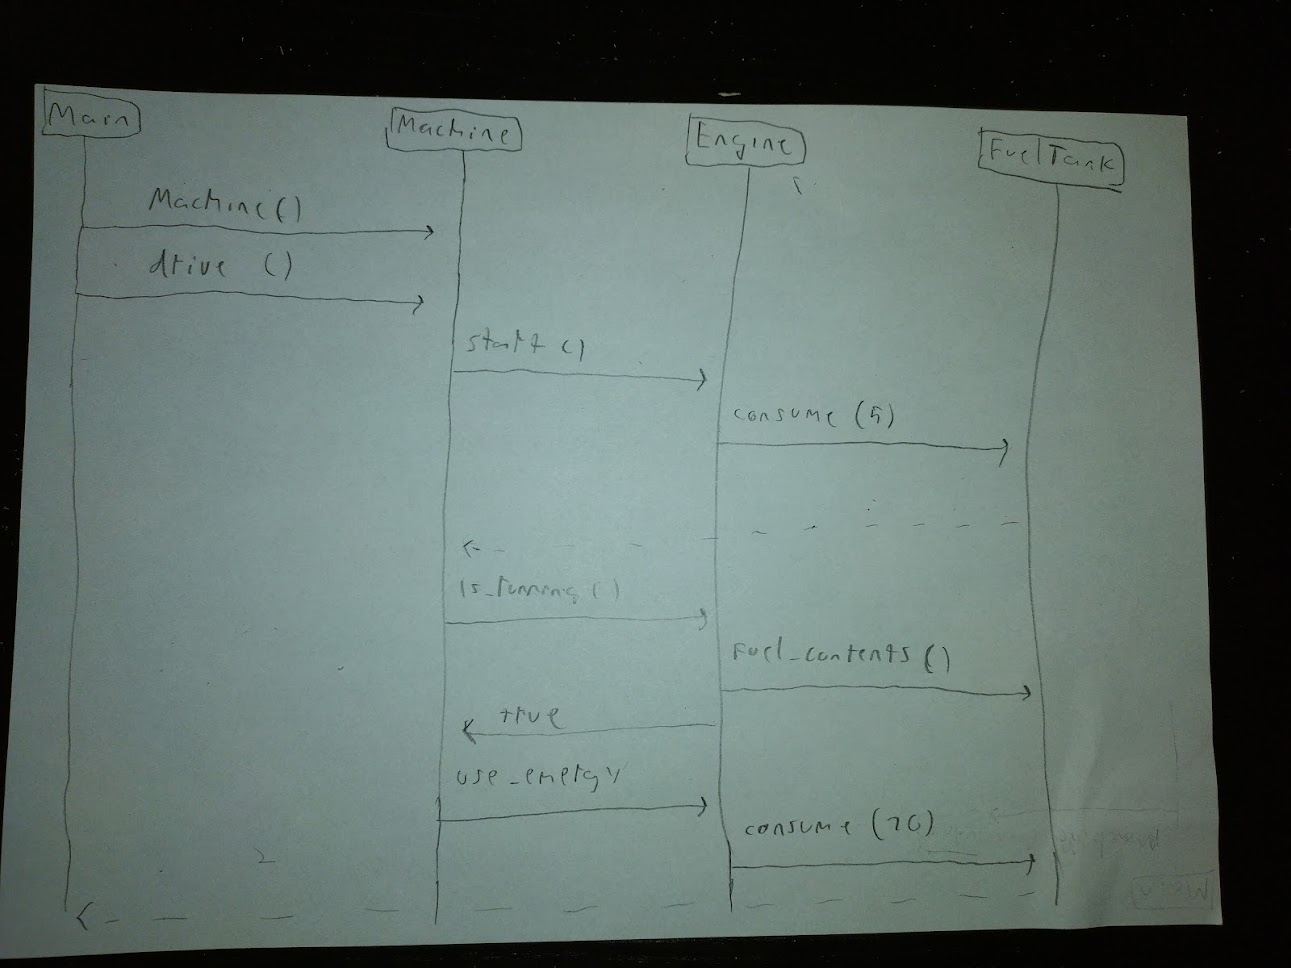 Main
Machine
Engine
FuelTank
Machine()
drive ()
start ()
consume (5)
is_running ()
Fuel_contents ()
true
use_energy
consume (10)
2
Main